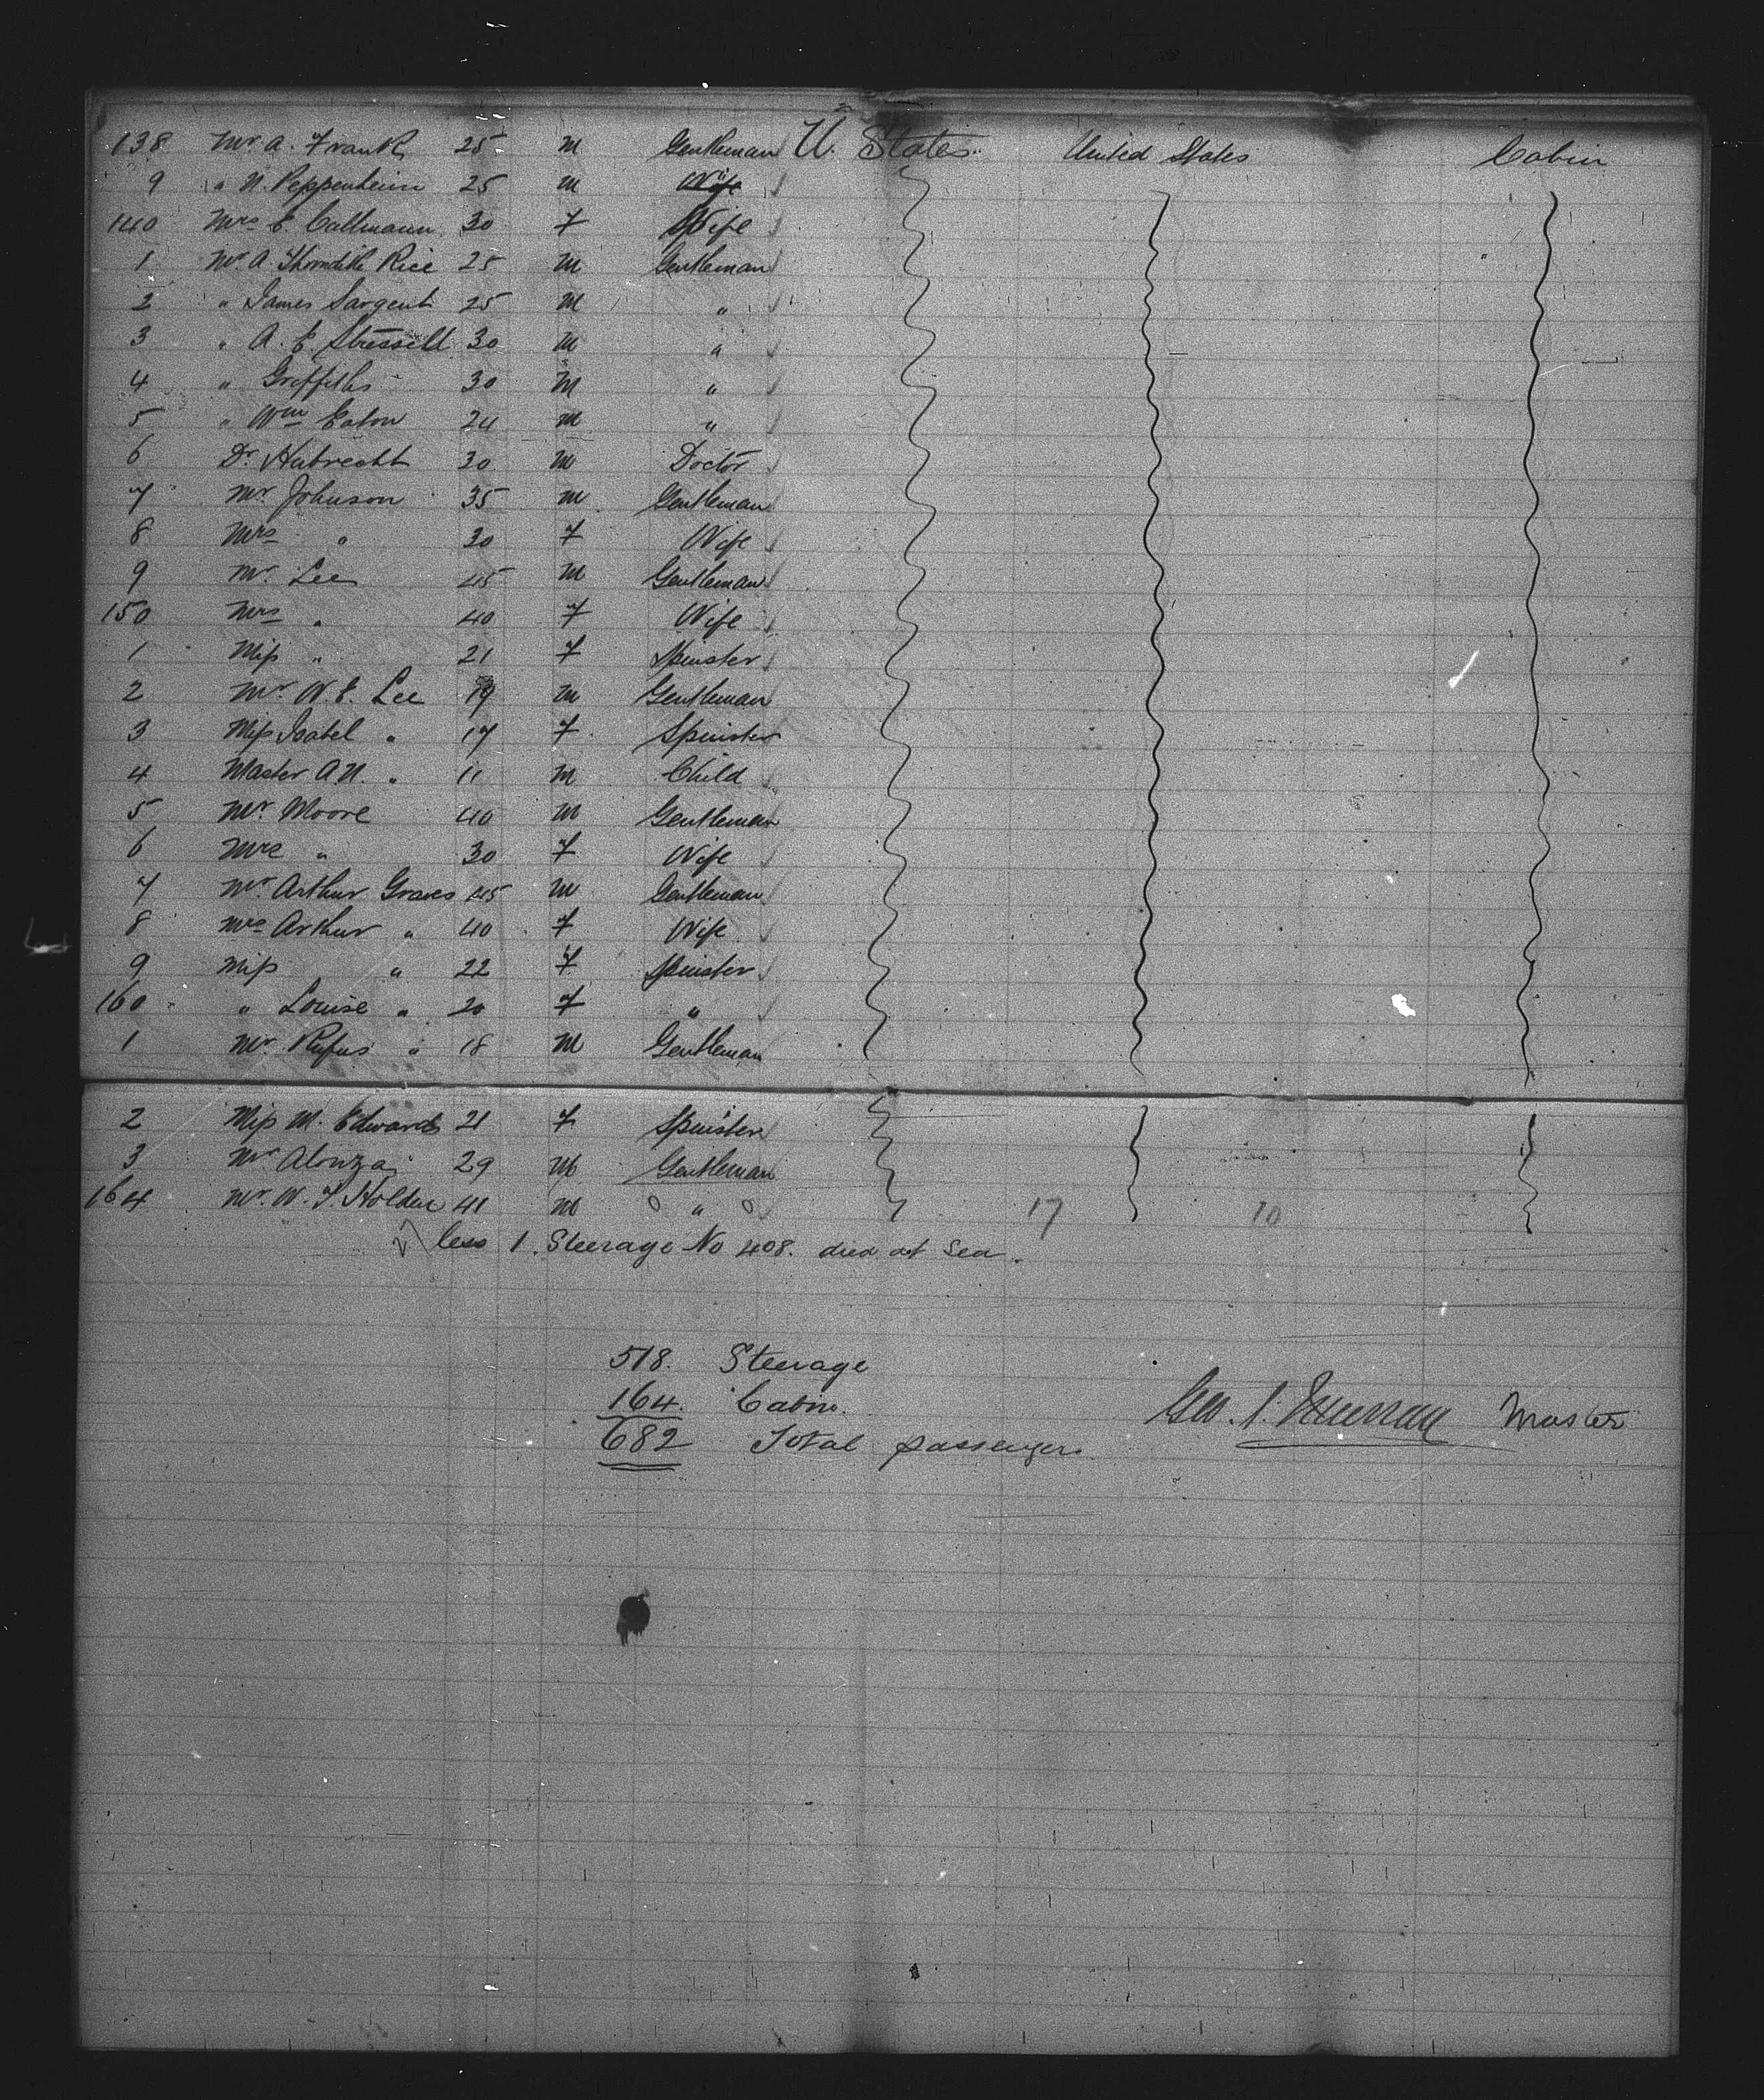 138 Mr A. Frank 25 M Gentleman U. States United States Cabin
9 " N. Peppenheim 25 M Wife
140 Mrs E. Callmann 30 F Wife
1 Mr A. Thorndike Rice 25 M Gentleman
2 " James Sargent 25 M "
3 " A. E. 30 M "
4 " Griffiths 30 M "
5 " Wm Eaton 24 M "
6 Dr Hubrecht 30 M Doctor
7 Mr Johnson 35 M Gentleman
8 Mrs " 30 F Wife
9 Mr Lee 45 M Gentleman
150 Mrs " 40 F Wife
1 Miss " 21 F Spinster
2 Mr. W. E. Lee 19 M Gentleman
3 Miss Isabel " 17 F Spinster
4 Master A N. " 11 M Child
5 Mr. Moore 40 M Gentleman
6 Mrs " 30 F Wife
7 Mr Arthur Graves 45 M Gentleman
8 Mrs Arthur " 40 F Wife
9 Miss " 22 F Spinster
160 " Louise " 20 F "
1 Mr. Rufus " 18 M Gentleman
2 Miss M. Edwards 21 F Spinster
3 Mr Alonza 29 M Gentleman
164 Mr. W. F. Holder 41 M " 17 10
less 1. Steerage No 408. died at Sea.
518. Steerage
164. Cabin.
682 Total passengers
Geo. S. Murray Master